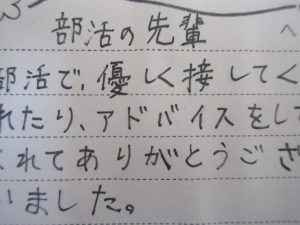 部活の先輩へ
部活で、優しく接してく
れたり、アドバイスをして
くれてありがとうござ
いました。